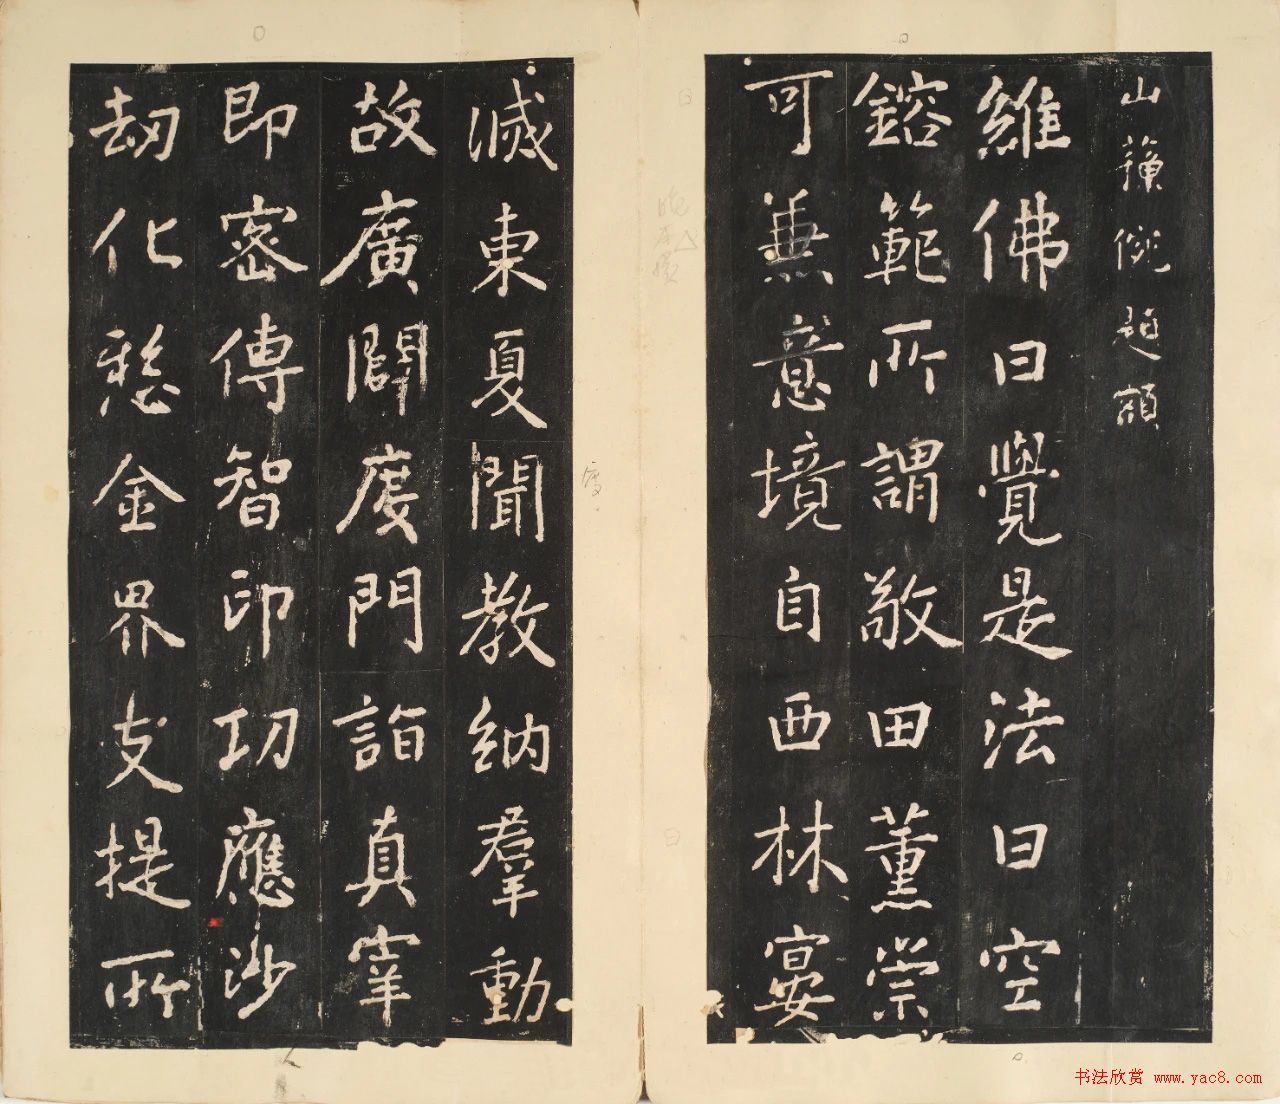 山蘓題額
維佛曰覺是法曰空
鎔範所謂敬田薰崇
可兼意境自西林宴
滅東夏聞教納羣動
故廣闢度門詣真宰
即密傳智印功應沙
劫化金界支提所
书法欣赏 www.yac8.com